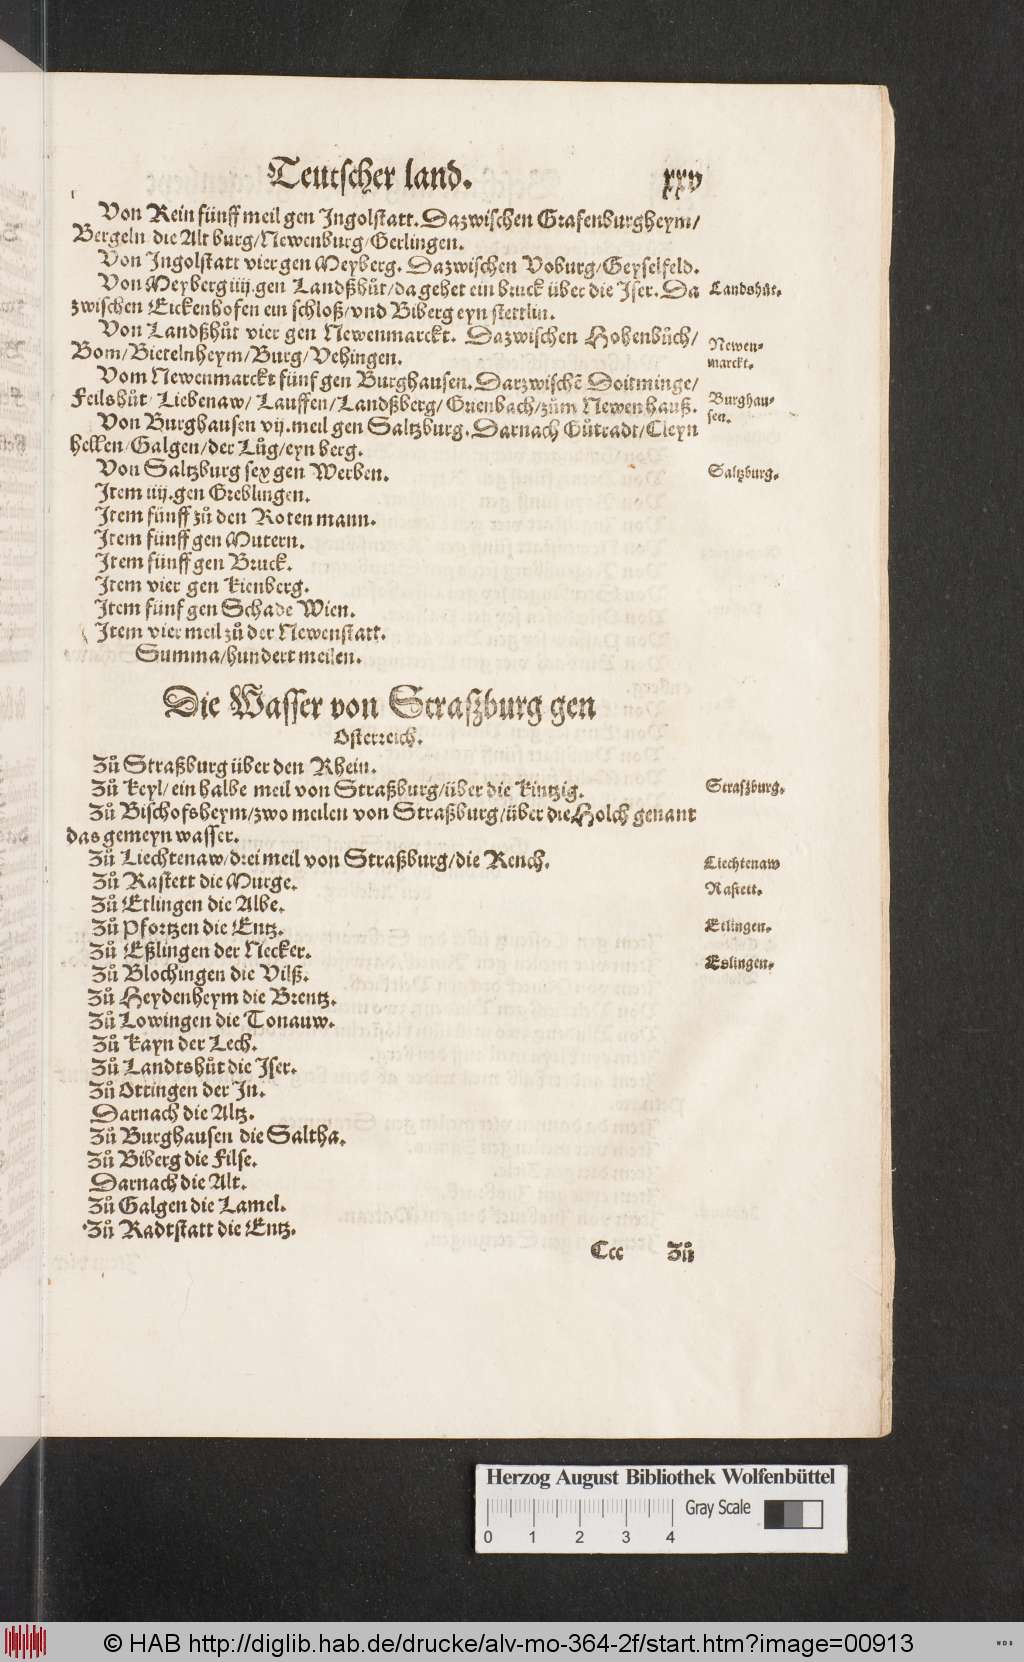 Teutscher land. xxv
Von Rein fünff meil gen Ingolstatt. Dazwischen Grafenburgheym/
Bergeln die Alt burg/Newenburg/Gerlingen.
Von Ingolstatt vier gen Meyberg. Dazwischen Voburg/Geyselfeld.
Von Meyberg iiij.gen Landßhůt/da gehet ein bruck über die Iser. Da
zwischen Eickenhofen ein schloß/vnd Biberg eyn stettlin.
Landshůt.
Von Landßhůt vier gen Newenmarckt. Dazwischen Hohenbůch/
Bom/Bietelnheym/Burg/Vehingen.
Newen-
marckt.
Vom Newenmarckt fünf gen Burghausen. Darzwischẽ Doitminge/
Feilshůt/Liebenaw/Lauffen/Landßberg/Guenbach/zům Newenhauß.
Burghau-
sen.
Von Burghausen vij.meil gen Saltzburg. Darnach Gůtradt/Cleyn
hellen/Galgen/der Lůg/eyn berg.
Von Saltzburg sex gen Werben.
Saltzburg.
Item iiij.gen Greblingen.
Item fünff zů den Roten mann.
Item fünff gen Mutern.
Item fünff gen Bruck.
Item vier gen Kienberg.
Item fünf gen Schade Wien.
Item vier meil zů der Newenstatt.
Summa/hundert meilen.
Die Wasser von Straßburg gen
Osterreich.
Zů Straßburg über den Rhein.
Zů Keyl/ein halbe meil von Straßburg/über die Kintzig.
Straßburg.
Zů Bischofsheym/zwo meilen von Straßburg/über die Holch genant
das gemeyn wasser.
Zů Liechtenaw/drei meil von Straßburg/die Rench.
Liechtenaw
Zů Rastett die Murge.
Rastett.
Zů Etlingen die Albe.
Zů Pfortzen die Entz.
Etlingen.
Zů Eßlingen der Necker.
Eslingen.
Zů Blochingen die Vilß.
Zů Heydenheym die Brentz.
Zů Lowingen die Tonauw.
Zů Kayn der Lech.
Zů Landtshůt die Iser.
Zů Ottingen der In.
Darnach die Altz.
Zů Burghausen die Saltha.
Zů Biberg die Filse.
Darnach die Alt.
Zů Galgen die Lamel.
Zů Radtstatt die Entz.
Ccc Zů
Herzog August Bibliothek Wolfenbüttel
0 1 2 3 4
Gray Scale
© HAB http://diglib.hab.de/drucke/alv-mo-364-2f/start.htm?image=00913